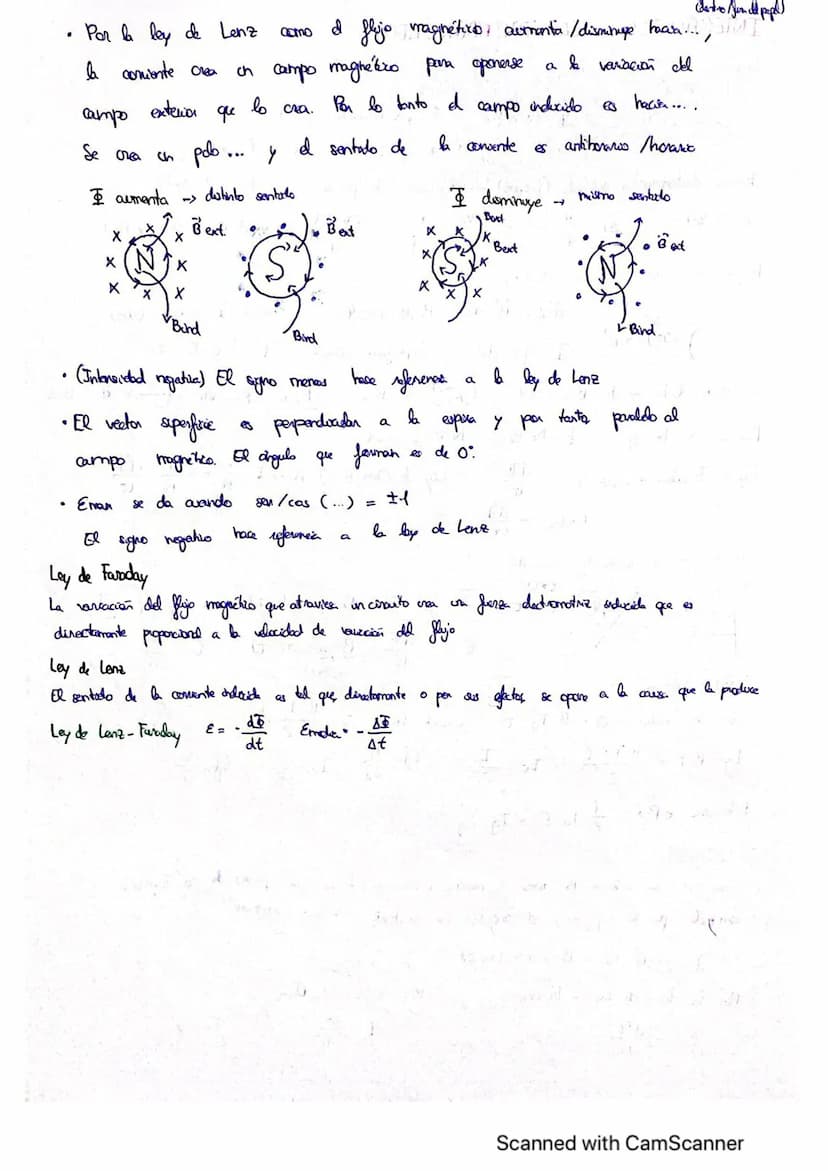 (dentro/fuera del papel)
• Por la ley de Lenz como el flujo magnético, aumenta/disminuye hacia...,
la corriente crea un campo magnético para oponerse a la variación del
campo exterior que lo crea. Por lo tanto el campo inducido es hacia....
Se crea un polo... y el sentido de la corriente es antihorario/horario
Φ aumenta -> distinto sentido Φ disminuye → mismo sentido
x x x B ext. N x x x x x x Bind
B ext S Bind
x x Bind x Bext x S x x x x
B ext N Bind
• (Intensidad negativa) El signo menos hace referencia a la ley de Lenz
• El vector superficie es perpendicular a la espira y por tanto paralelo al
campo magnético. El ángulo que forman es de 0°.
• Emax se da cuando sen/cos (...) = ±1
El signo negativo hace referencia a la ley de Lenz
Ley de Faraday
La variación del flujo magnético que atraviesa un circuito crea una fuerza electromotriz inducida que es
directamente proporcional a la velocidad de variación del flujo
Ley de Lenz
El sentido de la corriente inducida es tal que, directamente o por sus efectos, se opone a la causa que la produce
Ley de Lenz-Faraday ε = - dΦ/dt Emedia = - ΔΦ/Δt
Scanned with CamScanner